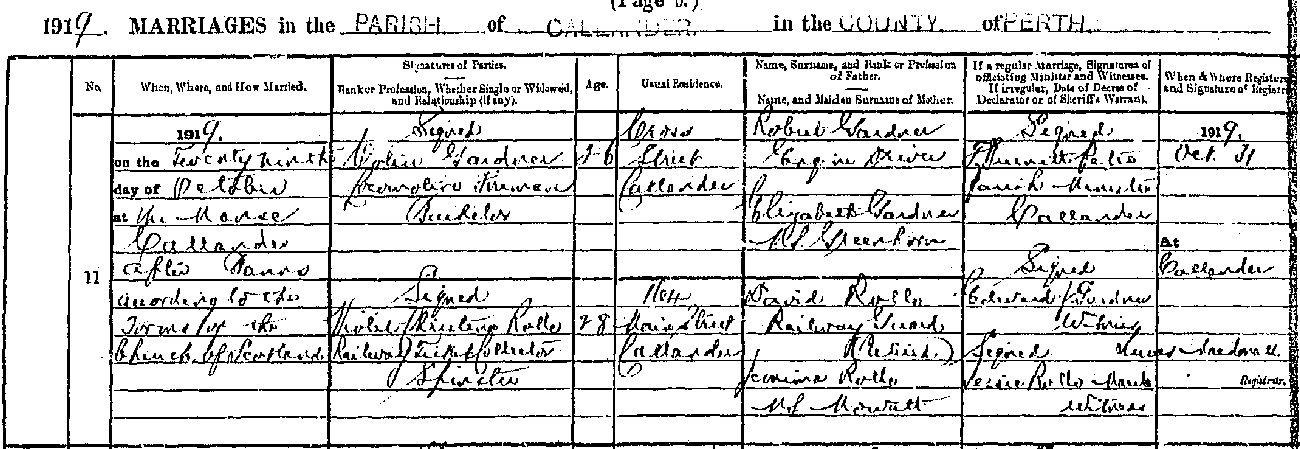 (Page 6.)
1919. MARRIAGES in the PARISH of CALLANDER in the COUNTY of PERTH.
No.
When, Where, and How Married.
Signatures of Parties.
Rank or Profession, Whether Single or Widowed, and Relationship (if any).
Age.
Usual Residence.
Name, Surname, and Rank or Profession of Father.
Name, and Maiden Surname of Mother.
If a regular Marriage, Signatures of officiating Minister and Witnesses. If irregular, Date of Decree of Declarator or of Sheriff's Warrant.
When & Where Registered and Signature of Registrar
11
1919.
on the Twenty ninth
day of October
at The Manse
Callander
After Banns
according to the
Forms of the
Church of Scotland
Signed
Colin Gardner
Locomotive Fireman
Bachelor
Signed
Violet Rollo
Railway Ticket Collector
Spinster
26
28
Cross
Street
Callander
Main Street
Callander
Robert Gardner
Engine Driver
Elizabeth Gardner
M.S. Greenhorn
David Rollo
Railway Guard
(Retired)
Jemima Rollo
M.S. Mowatt
Signed
Parish Minister
Callander
Signed
Edward Gardner
Witness
Signed
Jessie Rollo
Witness
1919.
Oct. 31
At
Callander
Registrar.